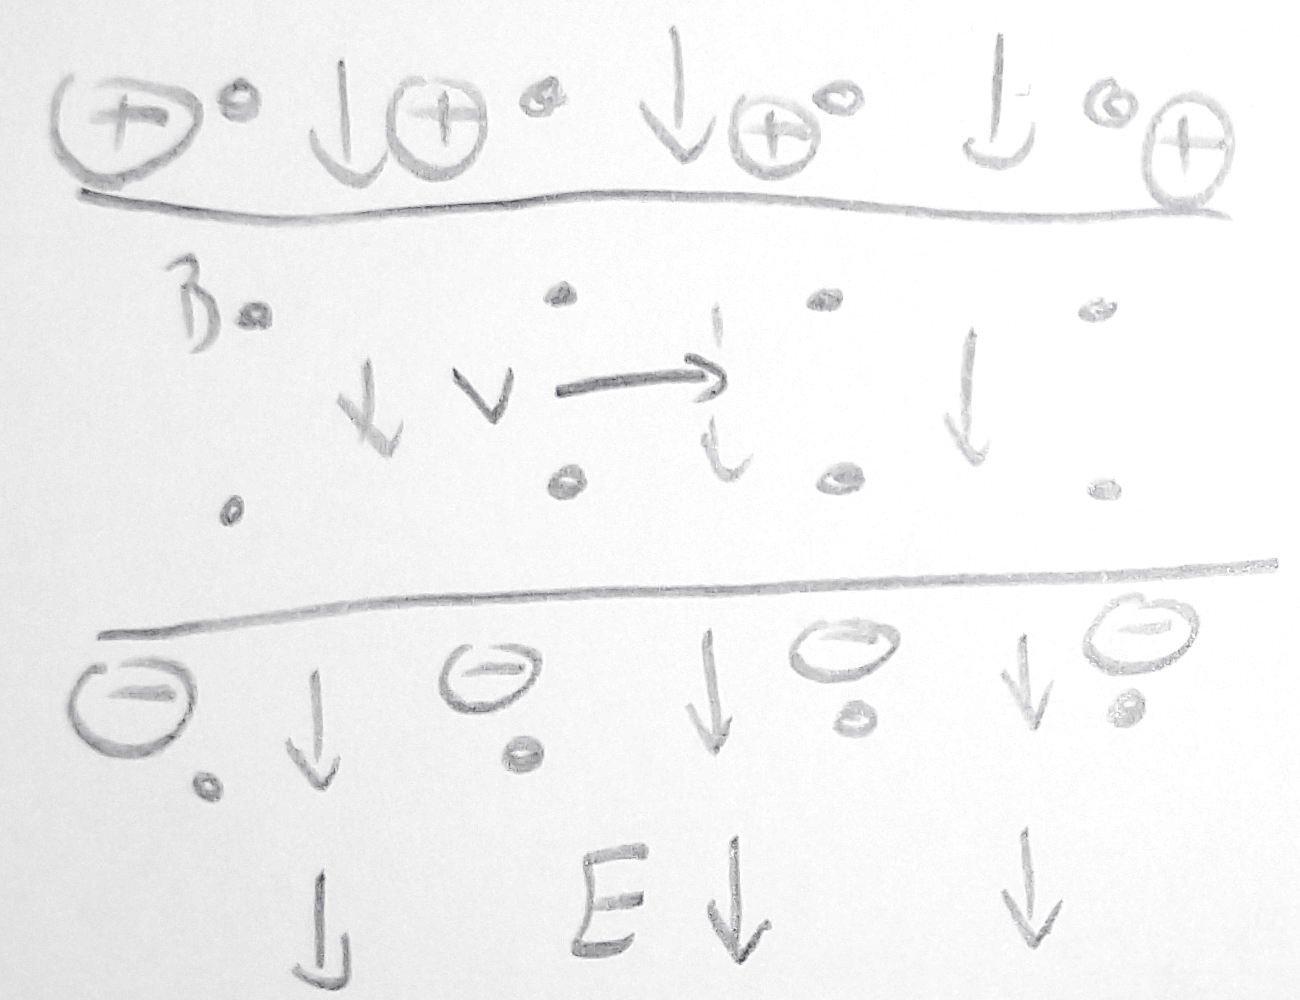 + + + +
B
V
- - - -
E